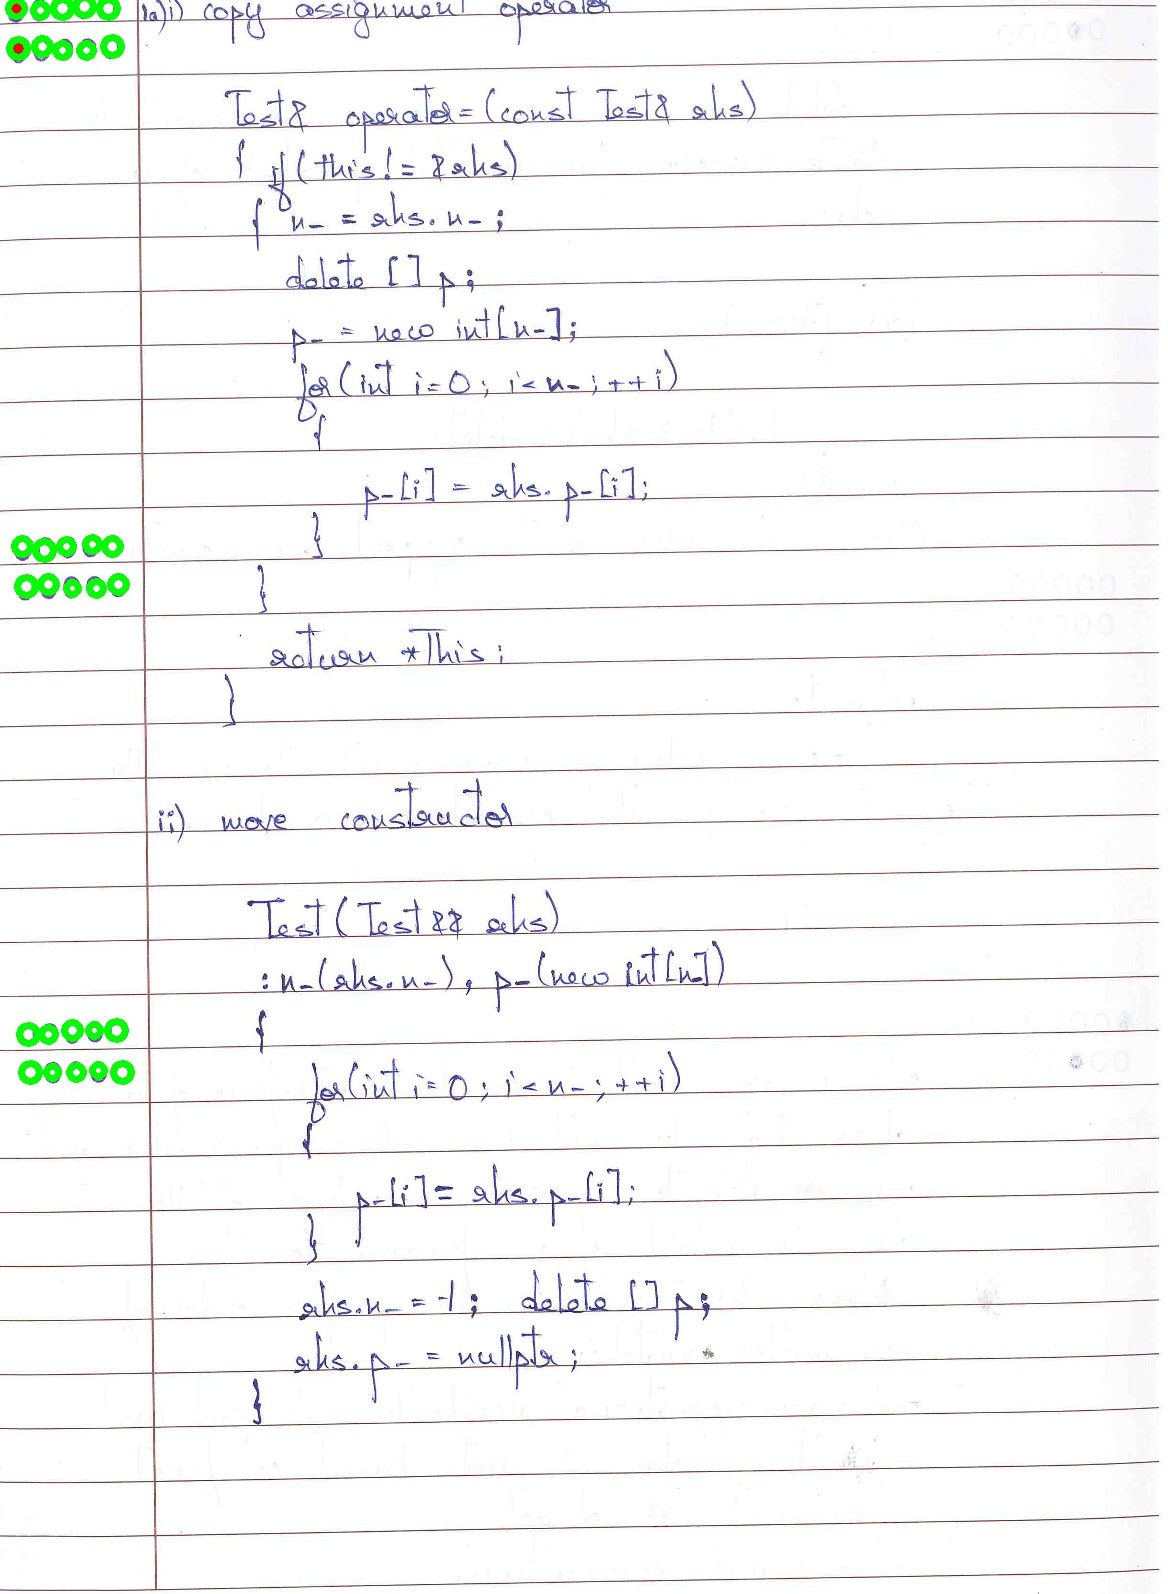 1a)i) copy assignment operator
Test& operator=(const Test& rhs)
{ if(this!= &rhs)
{ n_ = rhs.n_;
delete [] p;
p_ = new int[n_];
for(int i=0; i<n_; ++i)
{
p_[i] = rhs.p_[i];
}
}
return *This;
}
ii) move constructor
Test(Test&& rhs)
:n_(rhs.n_), p_(new int[n_])
{
for(int i=0; i<n_; ++i)
{
p_[i]= rhs.p_[i];
}
rhs.n_ = -1; delete [] p;
rhs.p_ = nullptr;
}